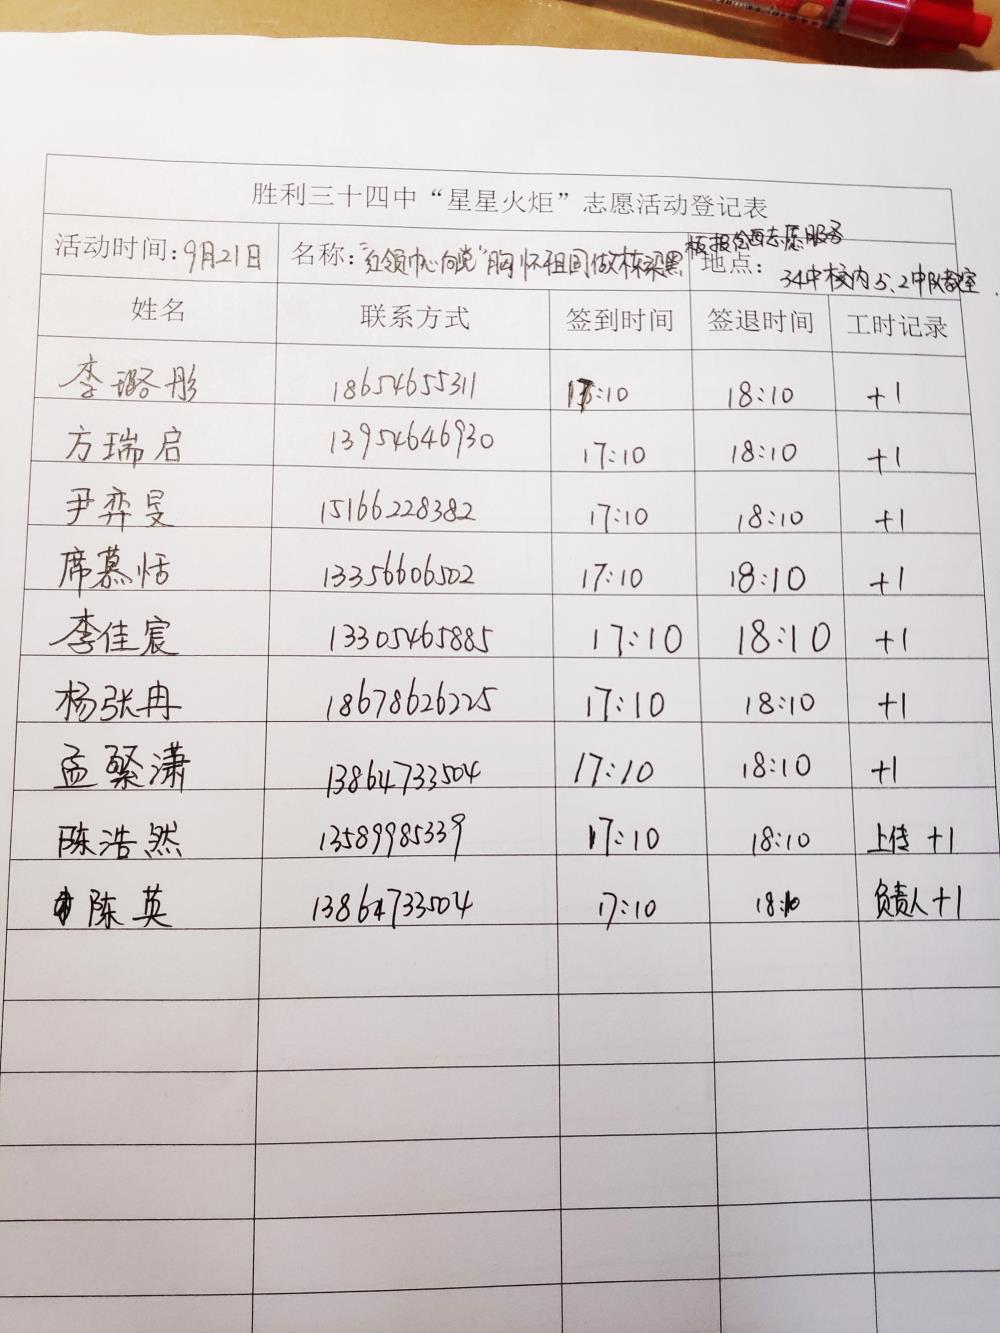 胜利三十四中“星星火炬”志愿活动登记表
活动时间:9月21日 名称:“红领巾心向党”胸怀祖国做栋梁黑板报绘画志愿服务 地点:34中校内5.2中队教室.
姓名 联系方式 签到时间 签退时间 工时记录
李璐彤 18654655311 17:10 18:10 +1
方瑞启 13954646930 17:10 18:10 +1
尹弈旻 15166228382 17:10 18:10 +1
席慕恬 13356606502 17:10 18:10 +1
李佳宸 13305465885 17:10 18:10 +1
杨张冉 18678626225 17:10 18:10 +1
孟繁潇 13864733504 17:10 18:10 +1
陈浩然 13589985339 17:10 18:10 上传 +1
陈英 13864733504 17:10 18:10 负责人+1